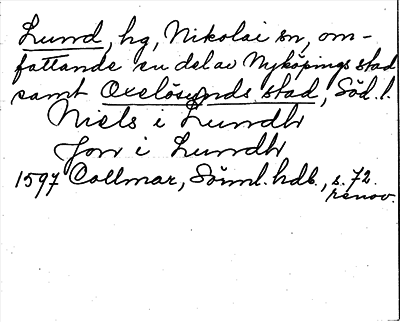 Lund, hg, Nikolai sn, om-
fattande en del av Nyköpings stad
samt Oxelösunds stad, Söd. l.
Niels i Lundh
Jon i Lundh
1597 Collmar, Sörml. hdl., s. 72.
renov.